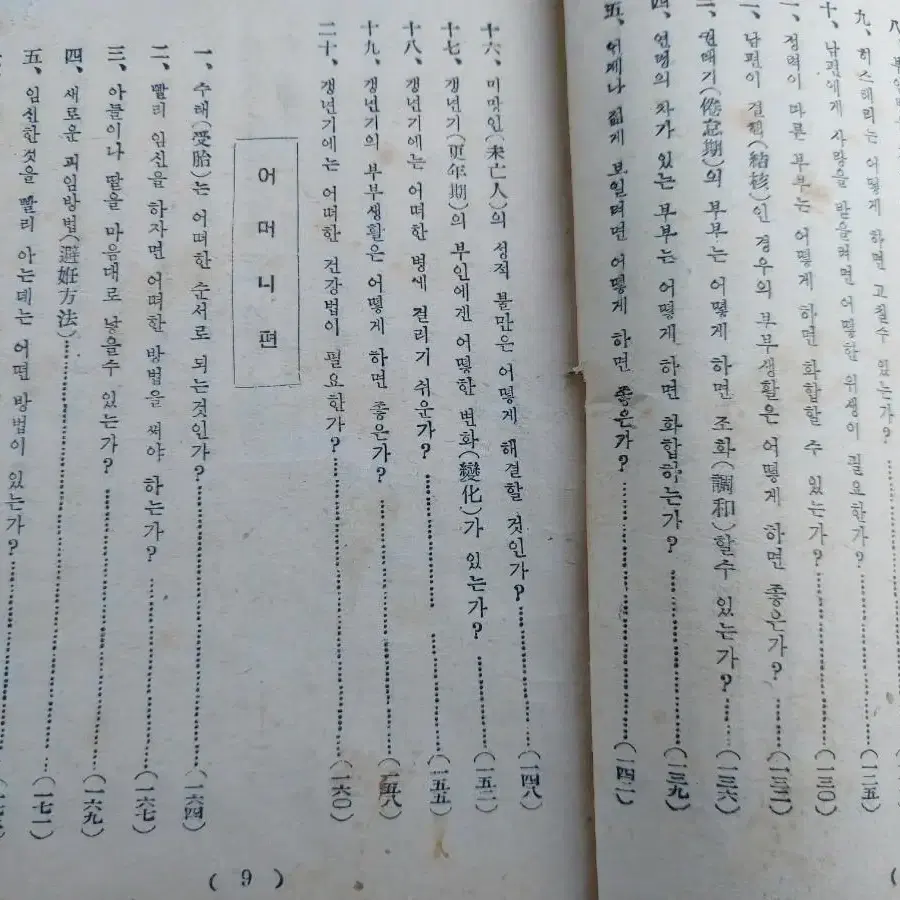 九、히스테리는 어떻게 하면 고칠수 있는가?
十、남편에게 사랑을 받을려면 어떠한 위생이 필요한가?……(一二五)
一、정력이 다른 부부는 어떻게 하면 화합할 수 있는가?……(一三○)
二、남편이 결핵(結核)인 경우의 부부생활은 어떻게 하면 좋은가?……(一三二)
三、권태기(倦怠期)의 부부는 어떻게 하면 조화(調和)할수 있는가?……(一三六)
四、연령의 차가 있는 부부는 어떻게 하면 화합하는가?……(一三九)
五、언제나 젊게 보일려면 어떻게 하면 좋은가?……(一四一)
十六、미망인(未亡人)의 성적 불만은 어떻게 해결할 것인가?……(一四八)
十七、갱년기(更年期)의 부인에겐 어떻한 변화(變化)가 있는가?……(一五二)
十八、갱년기에는 어떠한 병에 걸리기 쉬운가?……(一五五)
十九、갱년기의 부부생활은 어떻게 하면 좋은가?……(一五八)
二十、갱년기에는 어떠한 건강법이 필요한가?……(一六○)
어머니편
一、수태(受胎)는 어떠한 순서로 되는것인가?……(一六四)
二、빨리 임신을 하자면 어떠한 방법을 써야 하는가?……(一六七)
三、아들이나 딸을 마음대로 낳을수 있는가?……(一六九)
四、새로운 피임방법(避妊方法)……(一七一)
五、임신한것을 빨리 아는데는 어떤 방법이 있는가?
( 9 )